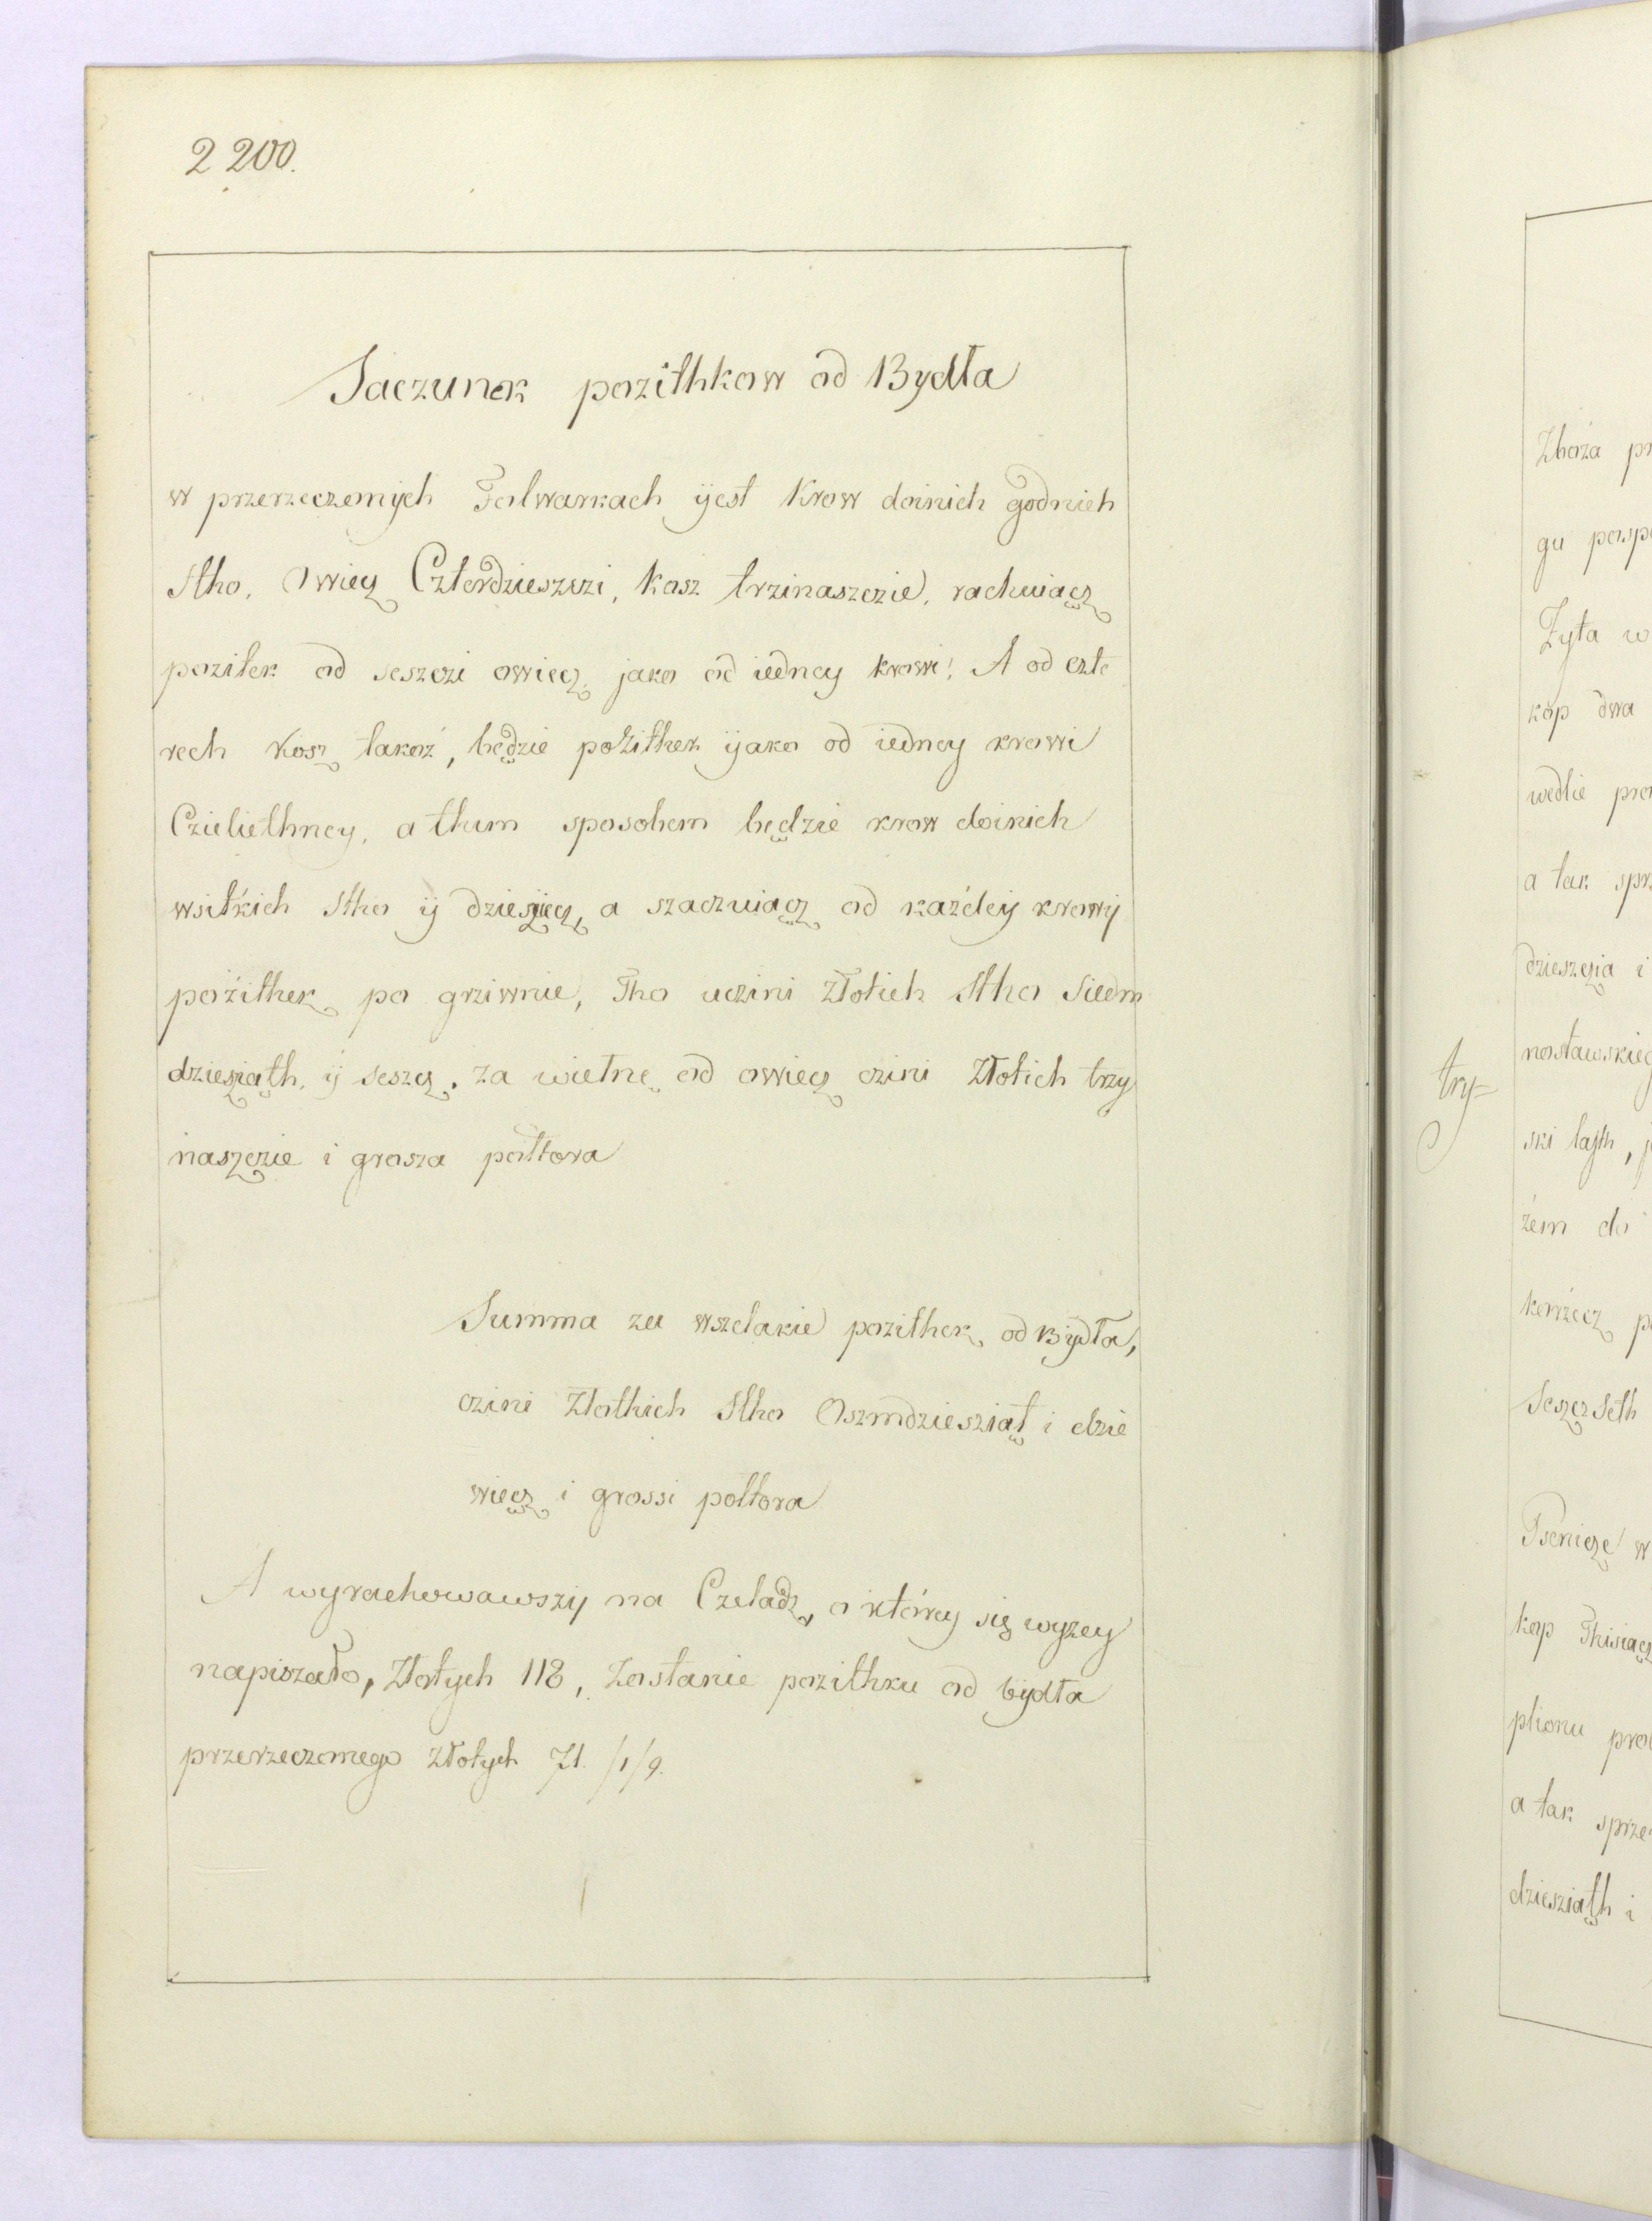 2 200.
Saczunek pozithkow od Bydła
w przerzeczemych Folwarkach yest Krow doinich godnich
Stho, Owięcz Czterdzieszczi, Kosz trzinaszczie, rachuiącz
pozitek od seszczi owięcz, jako od iedney krowi! A od czte
rech Kosz takoż, będzie pożithek yako od iedney krowi
Czieliethney, a thim sposobem będzie krow doinich
wsitkich Stho y dziesięcz, a szaczuiącz od każdey krowy
pożithek po grziwnie, Tho uczini Złotich Stho Siedm
dziesiąth, y seszcz. Za wielnę od owięcz czini Złotich trzy
naszczie i grosza połtora
Summa za wszelakie pozithek od Bydła,
czini Zlothich Stho Oszmdziesziąt i dzie
więcz i grossi połtora
A wyrachowawszy na Czeladz, o ktôrey się wyzey
napiszało, Złotych 118, Zostanie pozithku od bydła
przerzeczomego Złotych 71. /1/9.
try=
Zboża
gu
Zyta w
kop dwa
wedlie
a tak
dzieszęnia i
ski
żem do
Seszcz Seth
Psenicze w
kop Thisiącz
plionu
a tak
dziesziąth i